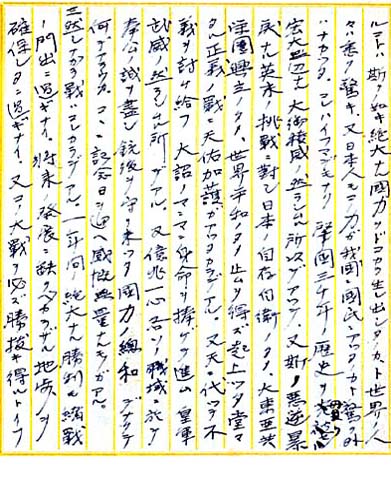 ルニト、斯ノ如キ絶大ナ國力ガドコカラ生レ出シタカト世界ノ人
々ハ悉ク驚キ、又日本人モコノ力ガ我國ニ國民ニアツタカト驚クノ外
ハナカツタ。コレハイフマデモナク肇國三千年ノ歴史ヲ貫ク光輝
宏大無辺ナル大御稜威ノ然ラシムル所、又斯ノ悪逆暴
戻ナ英米ノ挑戦ニ對シ日本ノ自存自衛ノタメ、大東亜共
栄圏興立ノタメ、世界平和ノタメ止ムヲ得ズ起上ツタ堂々
タル正義ノ戦デ天佑加護ガアツタカラデアル。又天ニ代リ不
義ヲ討ケ給フ大詔ノマニマニ身命ヲ捧ゲテ進ム皇軍
武威ノ然ラシムル所デアル。又億兆一心各ソノ職域ニ於テ
奉公ノ誠ヲ盡シ銃後ヲ守リ来ツタ國力ノ總和デナクテ
何デアラウカ。コノ記念日ヲ迎ヘ感慨無量ナルモノガアル。
然シナガラ戦ハコレカラデアル。一年間ノ絶大ナル勝利モ緒戦
ノ門出ニ過ギナイ。将来ノ發展ニ缺クベカラザル地歩ヲ
確保シタニ過ギナイ。又コノ大戦ヲ必ズ勝抜キ得ルトイフ